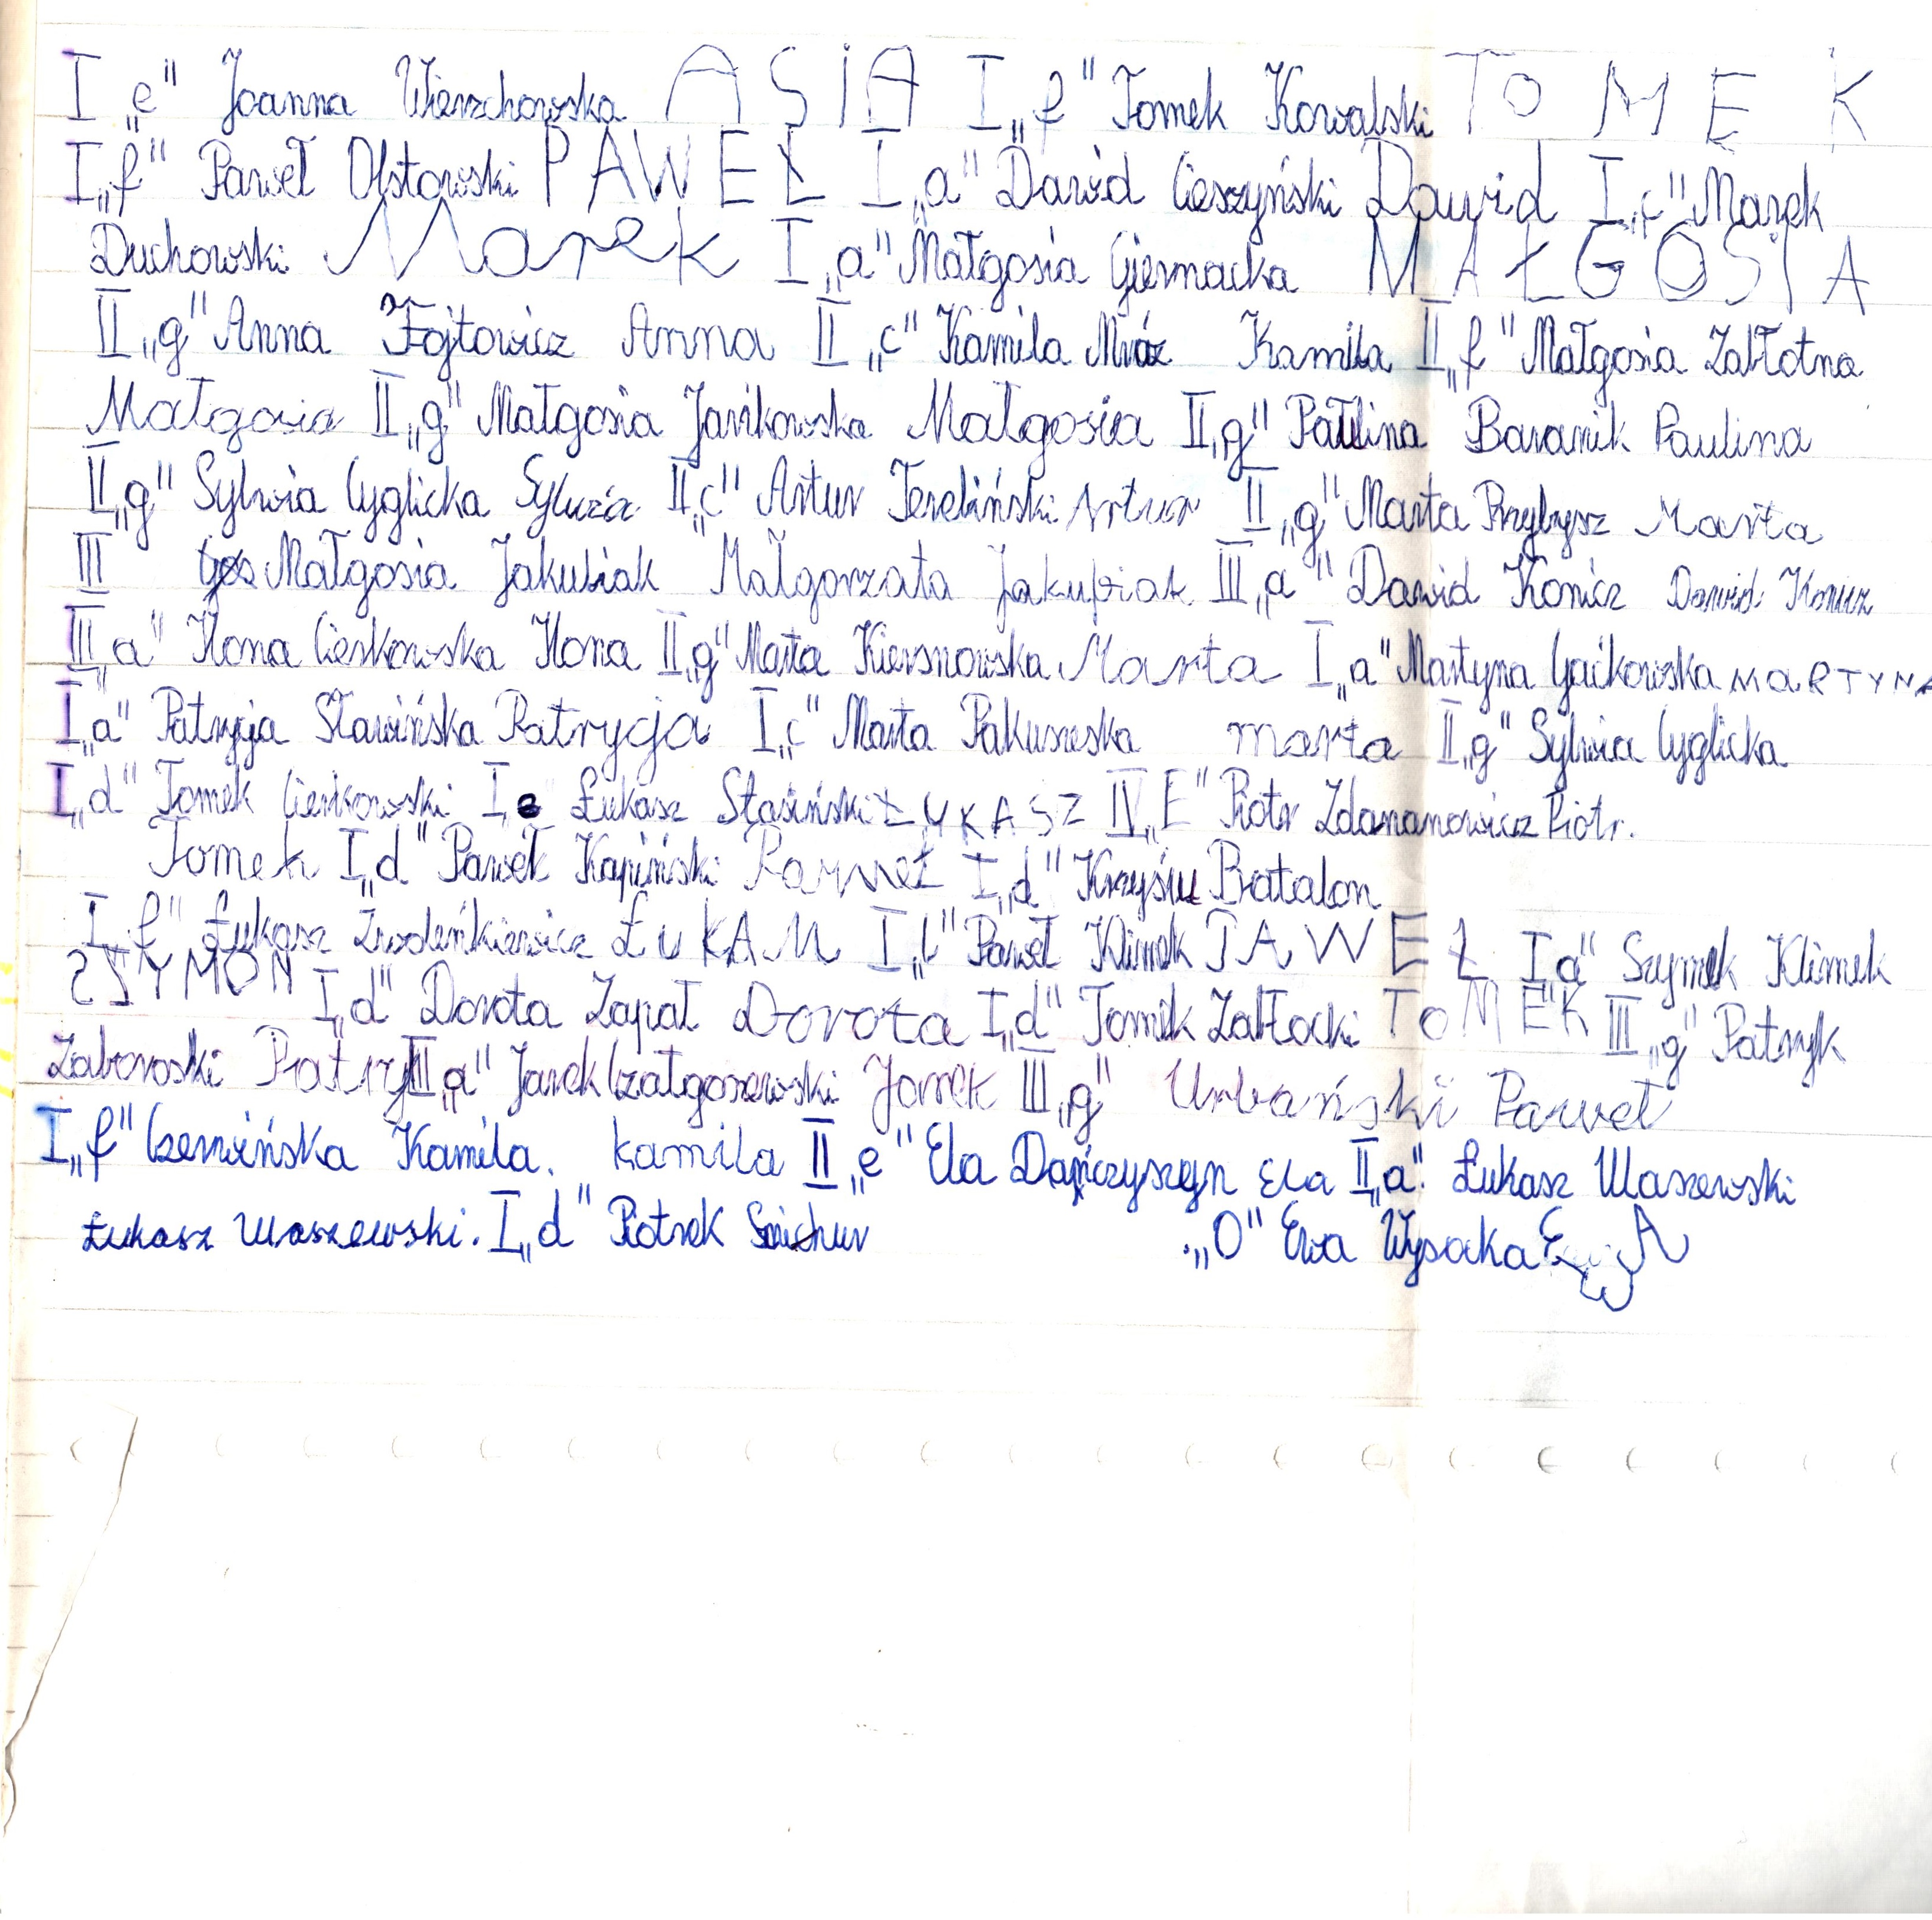 I „e" Joanna Wierzchowska ASiA I „f" Tomek Kowalski TOMEK
I „f" Paweł Olstowski PAWEŁ I „a" Dawid Cieszyński Dawid I „c" Marek
Duchowski Marek I „a" Małgosia Giermacka MAŁGOSIA
II „g" Anna Fojtowicz Anna II „c" Kamila Mróz Kamila II „f" Małgosia Zabłotna
Małgosia II „g" Małgosia Janikowska Małgosia II „g" Paulina Baranik Paulina
II „g" Sylwia Cyglicka Sylwia II „c" Artur Terebiński Artur II „g" Marta Przybysz Marta
III Małgosia Jakubiak Małgorzata Jakubiak III „a" Dawid Konicz Dawid Konicz
III „a" Ilona Cieskowska Ilona II „g" Marta Kiersnowska Marta I „a" Martyna Gaikowska MaRTYNA
I „a" Patrycja Sławińska Patrycja I „c" Marta marta II „g" Sylwia Cyglicka
I „d" Tomek Cieńkowski I e Łukasz Stasiński ŁUKASZ IV „E" Piotr Zdananowicz Piotr.
Tomek I „d" Paweł Kapiński Paweł I „d" Krzysiu Batalon
I „f" Łukasz ŁuKAM I Paweł Klimek PAWEŁ I „a" Szymek Klimek
SZYMON I „d" Dorota Zapał Dorota I „d" Tomek Zabłocki ToMEK III „g" Patryk
Zaboroski Patryk III „a" Jarek Czałgoszewski Jarek III „g" Urbański Paweł
I „f" Czerwińska Kamila. kamila II „e" Ela Dańczyszyn Ela II „a". Łukasz Ulaszewski
Łukasz Ulaszewski. I „d" Piotrek Smichur „O" Ewa Wysocka EwA